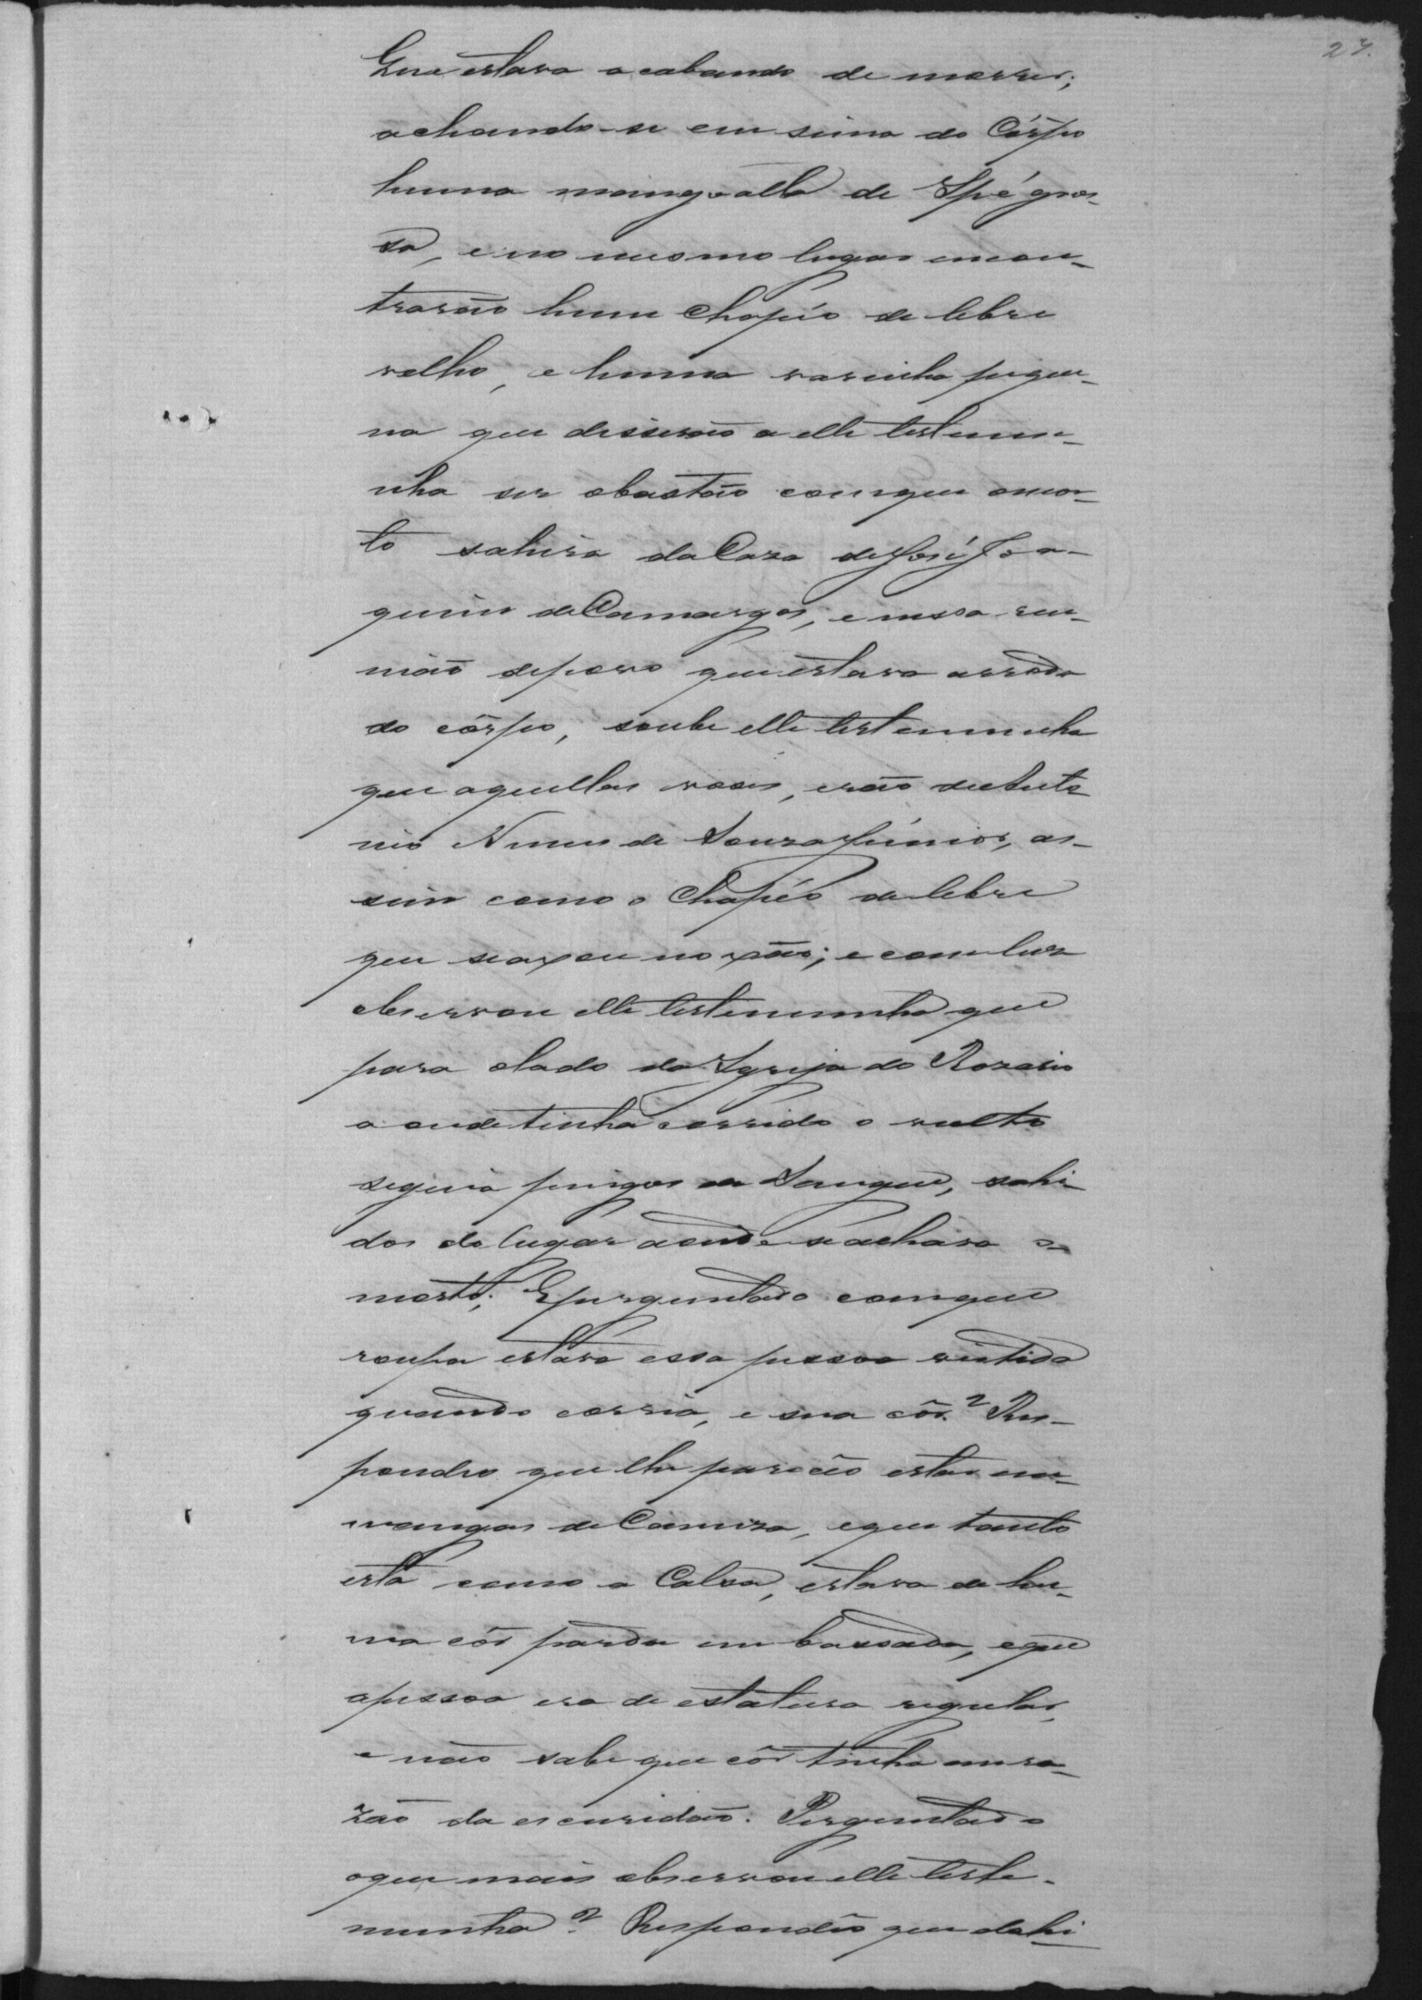 27.
Que estava acabando de morrer;
achando-se em sima do Côrpo
huma mangoalla de Ipé gros-
sa, e no mesmo lugar encon-
trarão hum Chapéo de lebre
velho, e huma varinha peque-
na que disserão a elle testemu-
nha ser obastão comque omor-
to sahira da Caza de José Joa-
quim de Camargos, e nessa reu-
nião depovo que estava arroda
do côrpo, soube elle testemunha
que aquellas vozes, erão de Anto
nio Nunes de Souza Júnior, as-
sim como o Chapéo de lebre
que se axou no xão; e com luz
observou elle testemunha que
para olado da Igreja do Rozario
aonde tinha corrido o vulto
seguia pingos de Sangue, sahi-
dos do lugar aonde se achava o
morto; E perguntado comque
roupa estava essa pessoa vistida
quando corria, e sua côr? Res-
pondeo que lhe pareceo estar em
mangas de Camiza, eque tanto
esta como a Calsa, estava de hu-
ma côr parda em bassada, eque
apessoa era de estatura regular,
e não sabe que côr tinha em ra-
zão da escuridão. Perguntado
oque mais observou elle teste-
munha? Respondêo que dahi